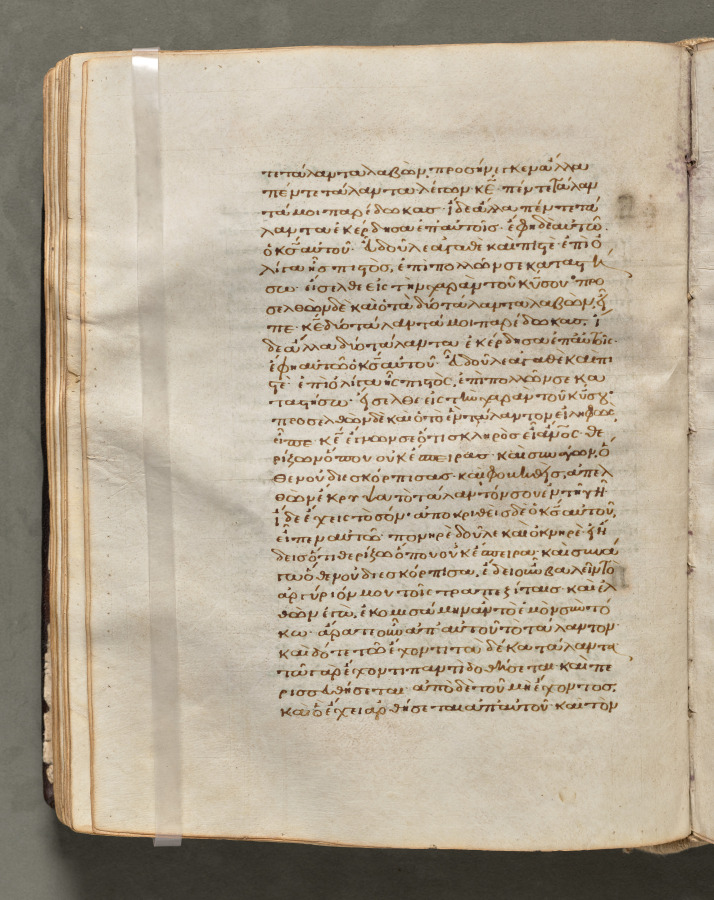 τε τάλαντα λαβὼν, προσήνεγκεν ἄλλα
πέντε τάλαντα λέγων· κε· πέντε τάλαν
τά μοι παρέδωκας· ἴδε ἄλλα πέντε τά
λαντα ἐκέρδησα ἐπ' αὐτοῖς· ἔφη δὲ αὐτῶ
ὁ κς αὐτοῦ· εὖ δοῦλε ἀγαθὲ καὶ πιστέ· ἐπὶ ὀ
λίγα ἦς πιστός, ἐπὶ πολλῶν σε καταστή
σω· εἴσελθε εἰς τὴν χαρὰν τοῦ κυ σου· προ
σελθὼν δὲ καὶ ὁ τὰ δύο τάλαντα λαβὼν, εἶ
πε· κε δύο τάλαντά μοι παρέδωκας, ἴ
δε ἄλλα δύο τάλαντα ἐκέρδησα ἐπ' αὐτοῖς·
ἔφη αὐτῶ ὁ κς αὐτοῦ· εὖ δοῦλε ἀγαθὲ καὶ πι
στέ· ἐπὶ ὀλίγα ἦς πιστός, ἐπὶ πολλῶν σε κα
ταστήσω· εἴσελθε εἰς τὴν χαρὰν τοῦ κυ σου·
προσελθὼν δὲ καὶ ὁ τὸ ἓν τάλαντον εἰληφὼς
εἶπε· κε ἔγνων σε ὅτι σκληρὸς εἶ ανος· θε
ρίζων ὅπου οὐκ ἔσπειρας· καὶ συνάγων, ὅ
θεν οὐ διεσκόρπισας· καὶ φοβηθεὶς, ἀπελ
θὼν ἔκρυψα τὸ τάλαντόν σου ἐν τῆ γῆ·
ἴδε ἔχεις τὸ σόν· ἀποκριθεὶς δὲ ὁ κς αὐτοῦ,
εἶπεν αὐτῶ· πονηρὲ δοῦλε καὶ ὀκνηρέ· ἤ
δεις ὅτι θερίζω ὅπου οὐκ ἔσπειρα· καὶ συνά
γω ὅθεν οὐ διεσκόρπισα, ἔδει οὖν βαλεῖν τὸ
ἀργύριόν μου τοῖς τραπεζίταις· καὶ ἐλ
θὼν ἐγὼ, ἐκομισάμην ἂν τὸ ἐμὸν σὺν τό
κω· ἄρατε οὖν ἀπ' αὐτοῦ τὸ τάλαντον·
καὶ δότε τῶ ἔχοντι τὰ δέκα τάλαντα·
τῶ γὰρ ἔχοντι παντὶ δοθήσεται· καὶ πε
ρισσευθήσεται· ἀπὸ δὲ τοῦ μὴ ἔχοντος,
καὶ ὃ ἔχει ἀρθήσεται ἀπ' αὐτοῦ· καὶ τὸν